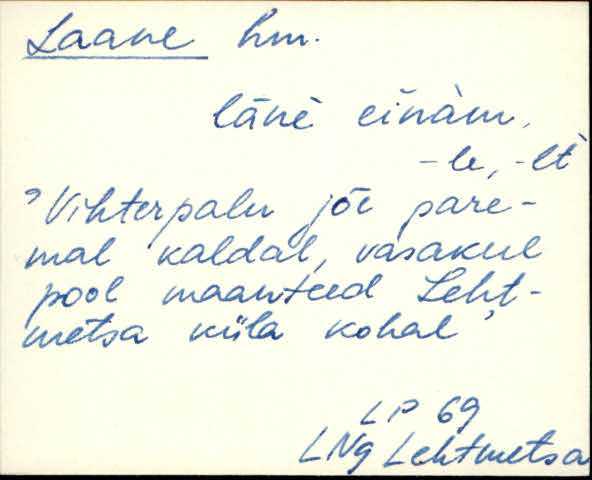 Laane hm.
lānè einàm,
-le, -lt
'Vihterpalu jõe pare-
mal kaldal, vasakul
pool maanteed Leht-
metsa küla kohal'
LP 69
LNg Lehtmetsa